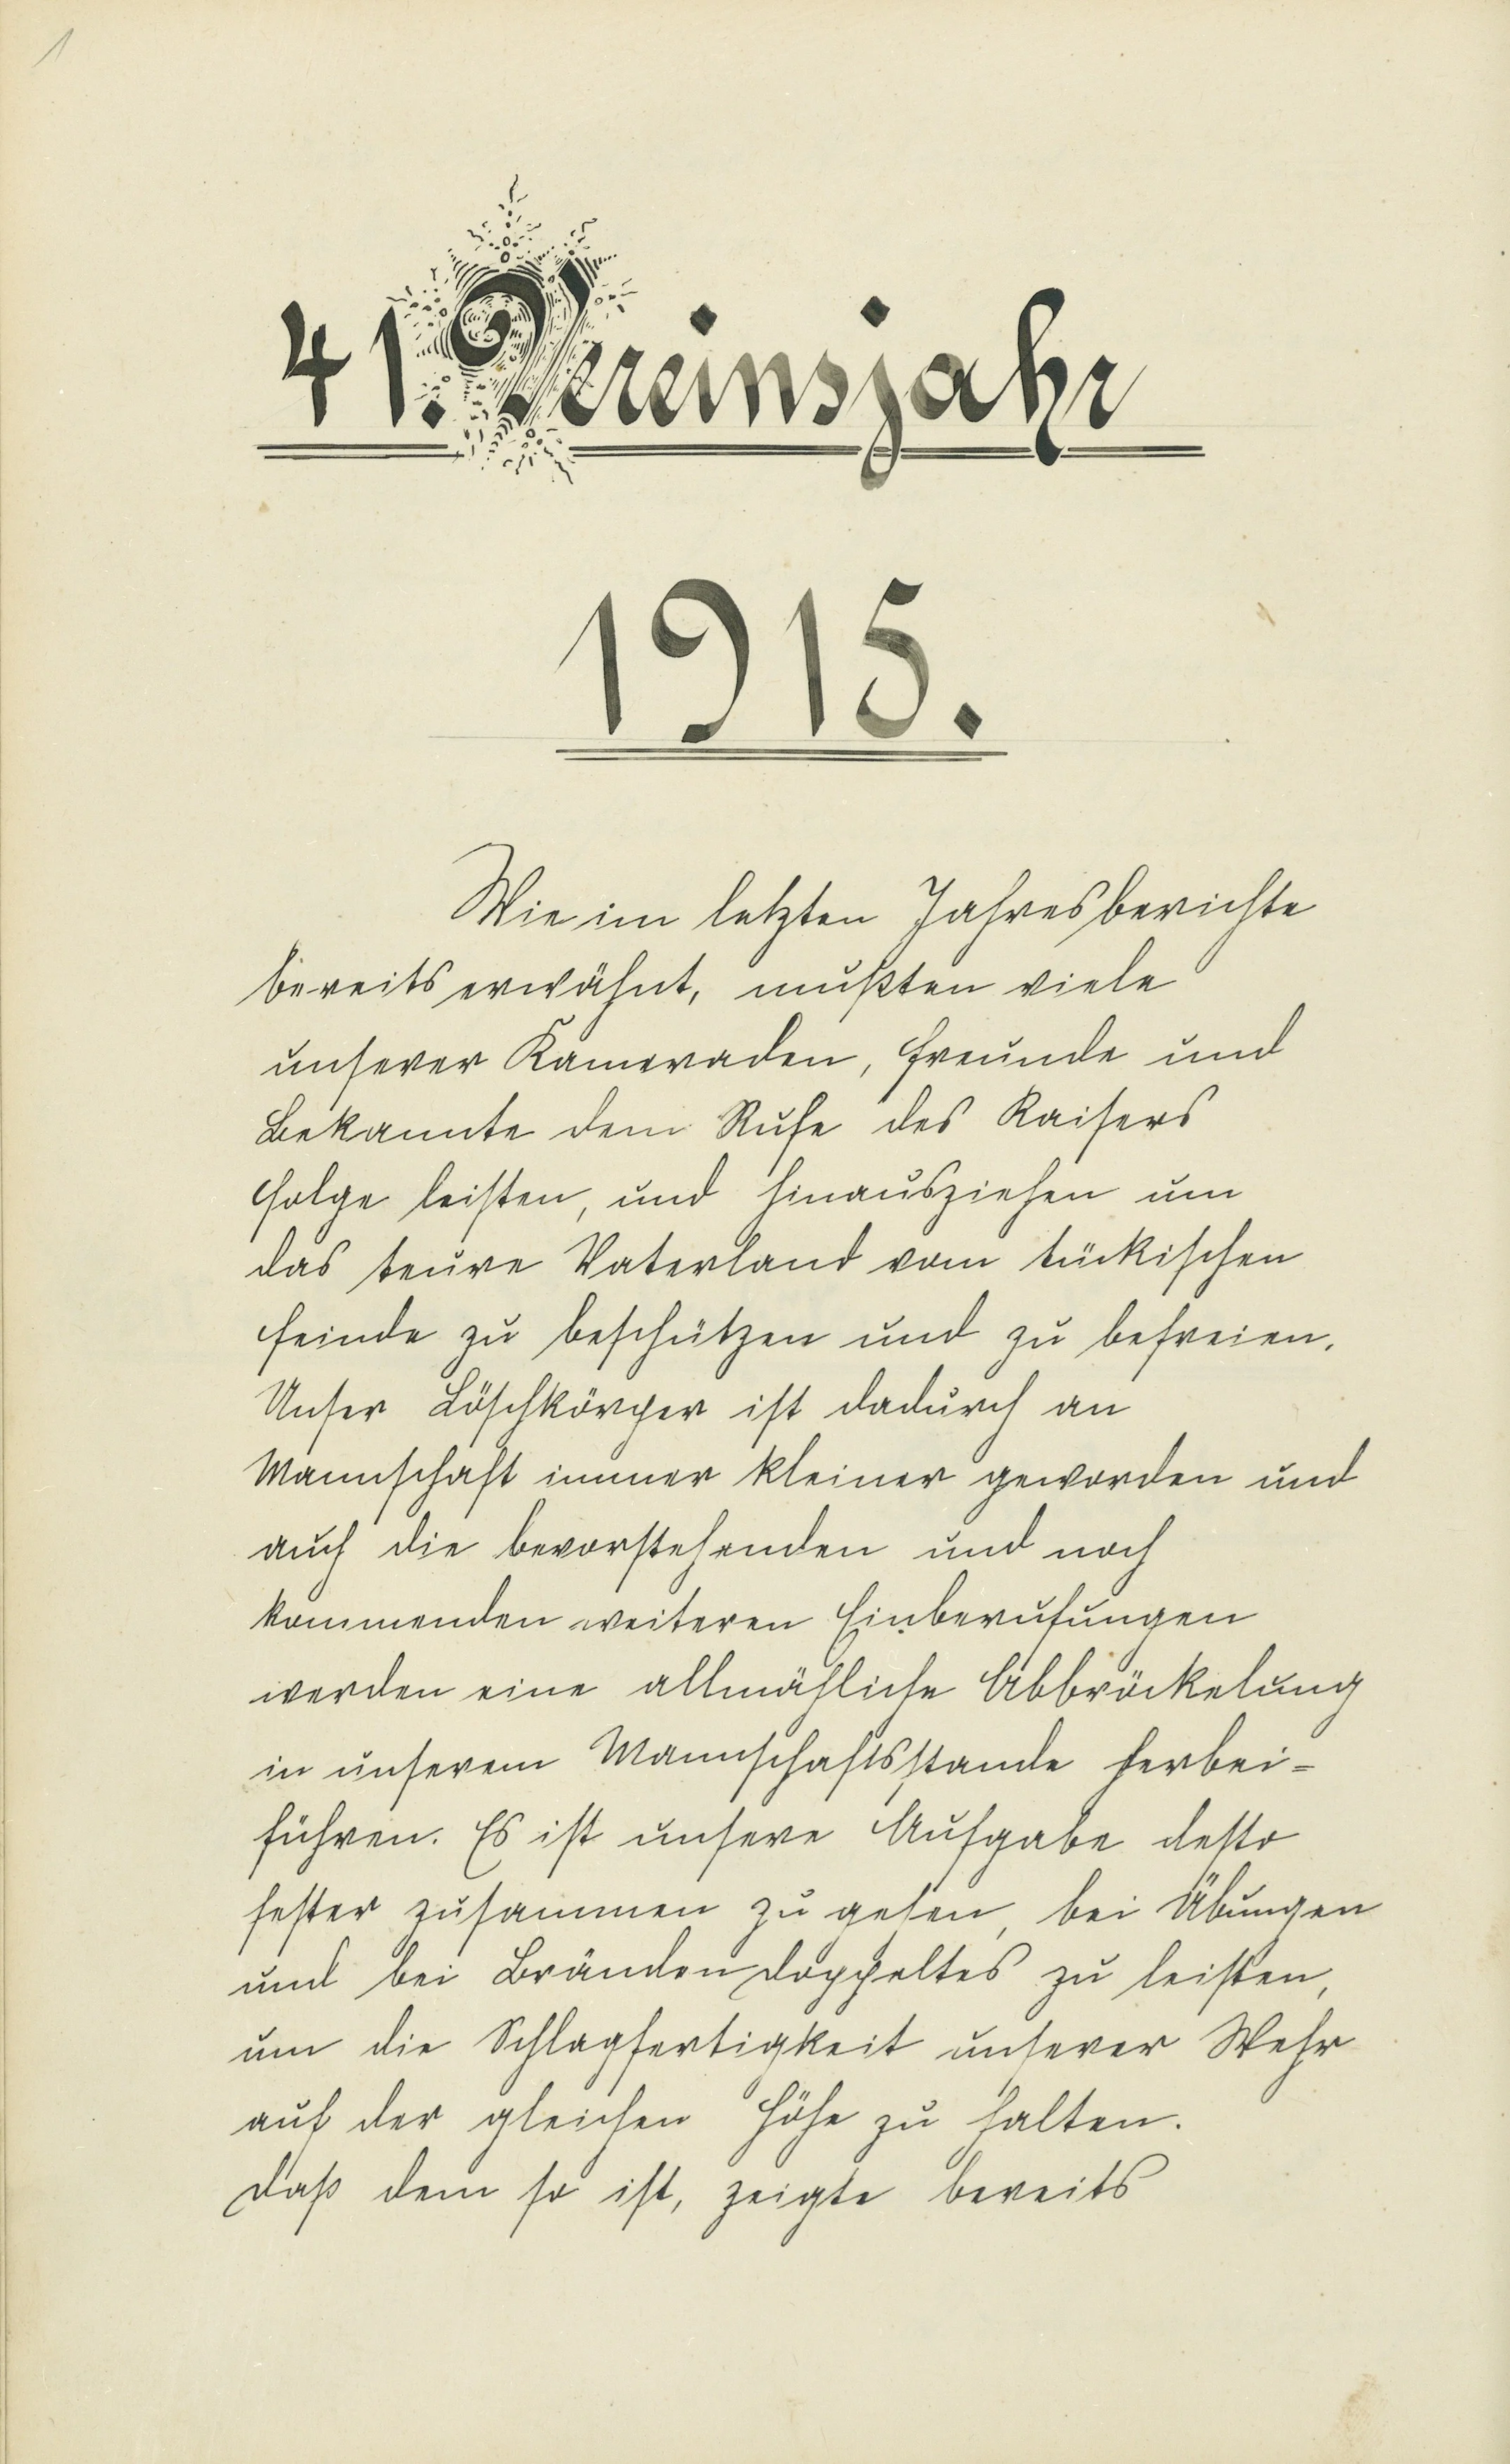 1
41. Vereinsjahr
1915.
Wie im letzten Jahresberichte
bereits erwähnt, mußten viele
unserer Kameraden, Freunde und
Bekannte dem Rufe des Kaisers
Folge leisten, und hinausziehen um
das teure Vaterland vom tückischen
Feinde zu beschützen und zu befreien.
Unser Löschkörper ist dadurch an
Mannschaft immer kleiner geworden und
auch die bevorstehenden und noch
kommenden weiteren Einberufungen
werden eine allmähliche Abbröckelung
in unserem Mannschaftsstande herbei=
führen. Es ist unsere Aufgabe desto
fester zusammen zu gehen, bei Übungen
und bei Bränden doppeltes zu leisten,
um die Schlagfertigkeit unserer Wehr
auf der gleichen Höhe zu halten.
Daß dem so ist, zeigte bereits